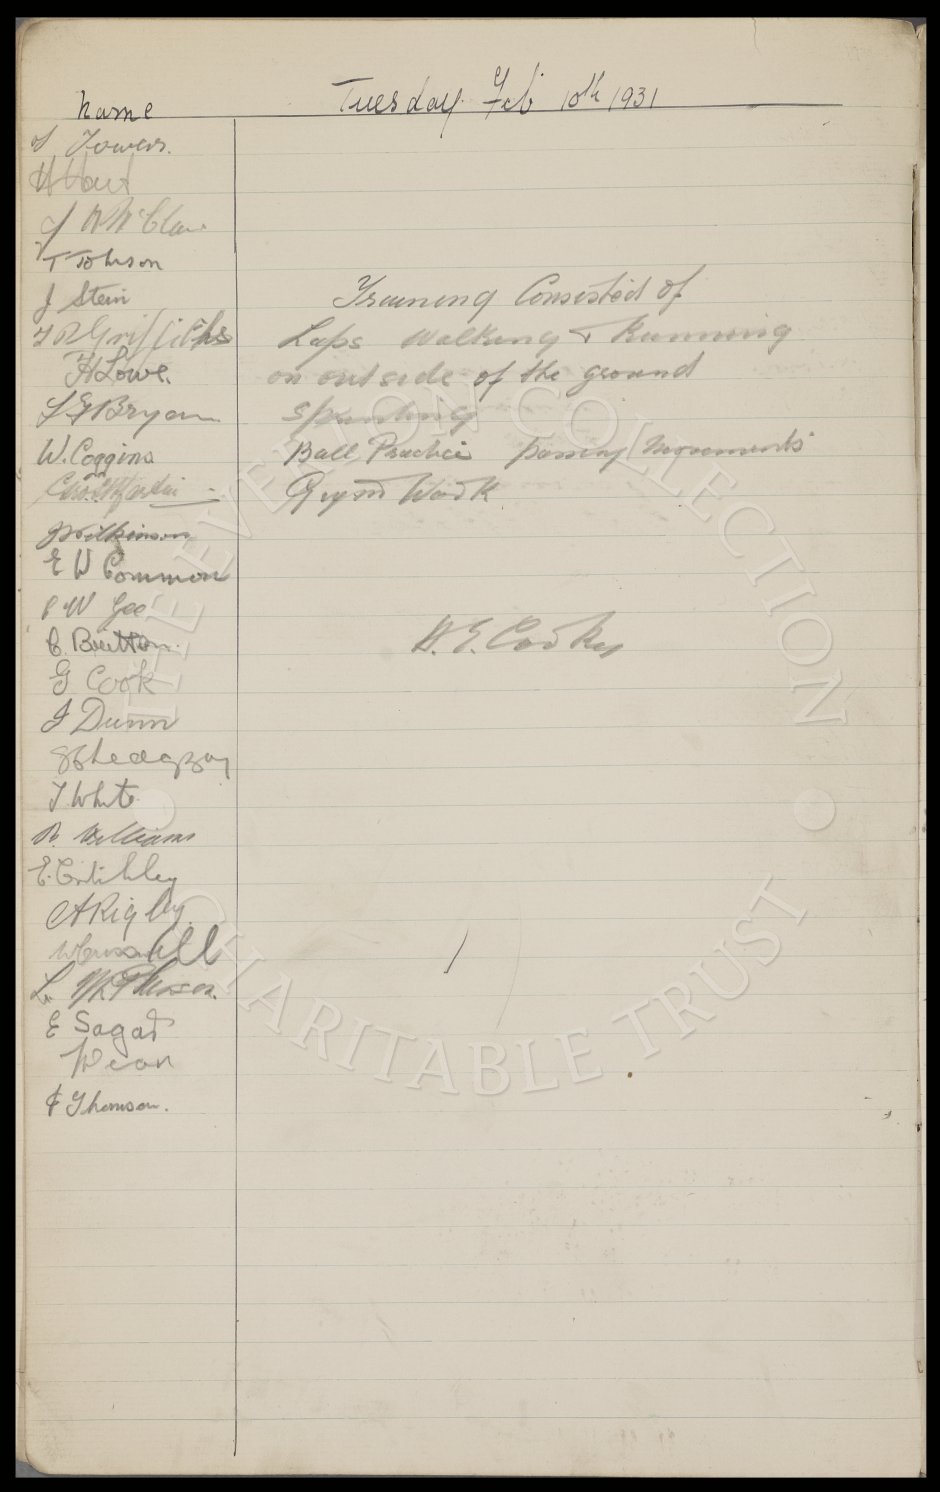 Name
Tuesday Feb 10th 1931
Towers.
H Hart
J W McClure
T Johnson
J Stein
T P Griffiths
H Lowe.
L F Bryan
W. Coggins
Chas. E. Gee
J Wilkinson
E W Common
C W Gee
C. Britton.
G Cook
J Dunn
T White
R. Williams
E. Critchley
A Rigby
W Cresswell
L. McPherson.
E Sagar
Dean
Thomson.
Training Consisted of
Laps Walking & Running
on outside of the ground
Sprinting
Ball Practice passing movements
Gym Work
H. E. Cooke
THE EVERTON COLLECTION
CHARITABLE TRUST